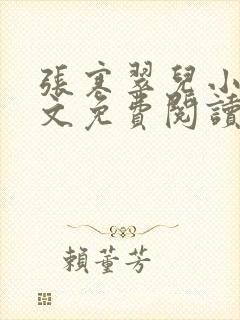 張寒翠兒小
文免費閱讀
賴董芳